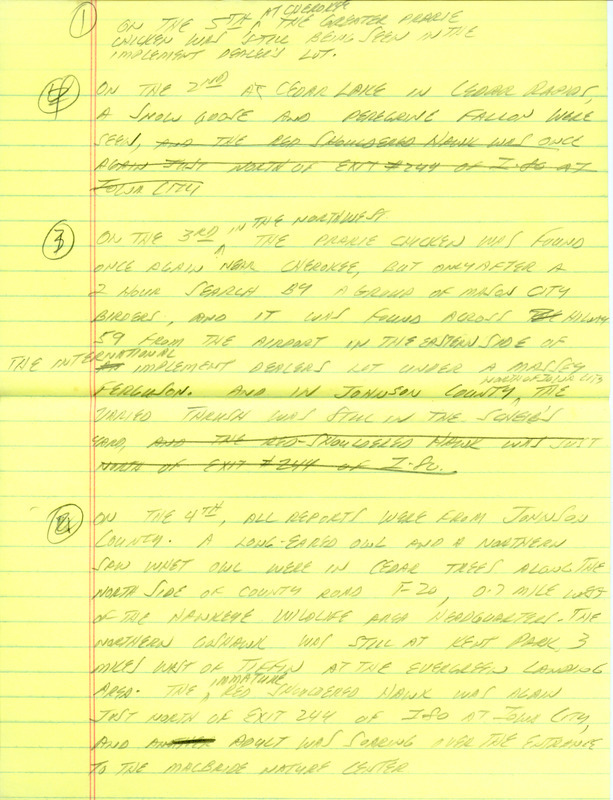 1 ON THE 5TH AT CHEROKEE, THE GREATER PRARIE
CHICKEN WAS STILL BEING SEEN IN THE
IMPLEMENT DEALER'S LOT.
4 ON THE 2ND AT CEDAR LAKE IN CEDAR RAPIDS,
A SNOW GOOSE AND PEREGRINE FALCON WERE
SEEN, AND THE RED SHOULDERED HAWK WAS ONCE
AGAIN JUST NORTH OF EXIT #244 OF I-80 AT
IOWA CITY
3 ON THE 3RD IN THE NORTHWEST THE PRARIE CHICKEN WAS FOUND
ONCE AGAIN NEAR CHEROKEE, BUT ONLY AFTER A
2 HOUR SEARCH BY A GROUP OF MASON CITY
BIRDERS, AND IT WAS FOUND ACROSS HIWAY
59 FROM THE AIRPORT IN THE EASTERN SIDE OF
THE INTERNATIONAL IMPLEMENT DEALERS LOT UNDER A MASSEY
FERGUSON. AND IN JOHNSON COUNTY NORTH OF IOWA CITY, THE
VARIED THRUSH WAS STILL IN THE
YARD, AND THE RED-SHOULDERED HAWK WAS JUST
NORTH OF EXIT #244 OF I-80.
2 ON THE 4TH, ALL REPORTS WERE FROM JOHNSON
COUNTY. A LONG-EARED OWL AND A NORTHERN
SAW WHET OWL WERE IN CEDAR TREES ALONG THE
NORTH SIDE OF COUNTY ROAD F-20, 0.7 MILE WEST
OF THE HAWKEYE WILDLIFE AREA HEADQUARTERS. THE
NORTHERN GOSHAWK WAS STILL AT KENT PARK 3
MILES WEST OF TIFFIN AT THE EVERGREEN LANDING
AREA. THE IMMATURE RED SHOULDERED HAWK WAS AGAIN
JUST NORTH OF EXIT 244 OF I-80 AT IOWA CITY,
AND ADULT WAS SOARING OVER THE ENTRANCE
TO THE MACBRIDE NATURE CENTER